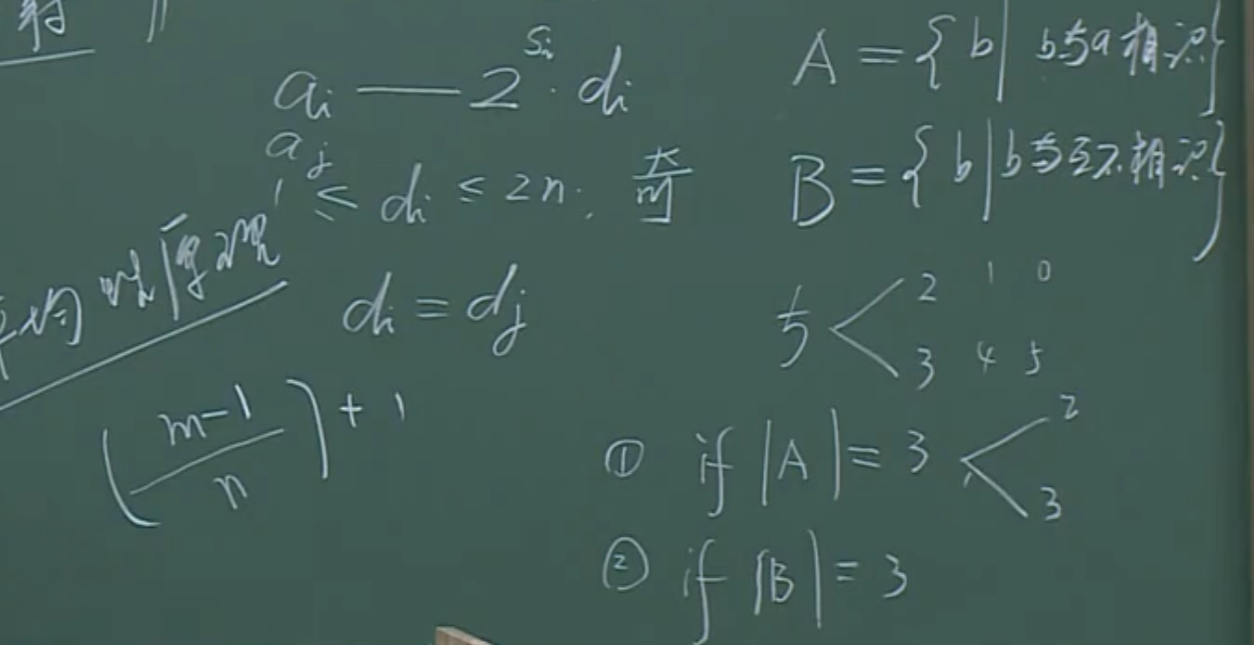 射》
a_i — 2^{s_i} · d_i
a_j
1 ≤ d_i ≤ 2n, 奇
d_i = d_j
平均性原理
[(m-1)/n] + 1
A = { b | b与a相识 }
B = { b | b与互不相识 }
5 < 2 1 0
3 4 5
① if |A| = 3 < 2
3
② if |B| = 3